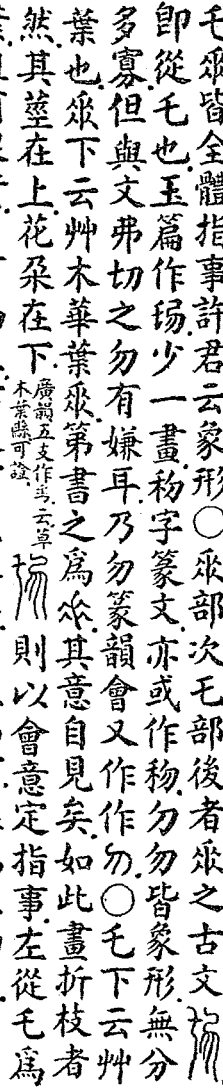 乇𠂹皆全體指事許君云象形〇𠂹部次乇部後者𠂹之古文
卽從乇也玉篇作㐌少一畫𥝤字篆文亦或作𥝤勿勿皆象形無分
多寡但與文弗切之勿有嫌耳乃勿篆韻會又作作勿〇乇下云艸
葉也𠂹下云艸木華葉𠂹第書之爲𠂹其意自見矣如此畫折枝者
然其莖在上花朶在下廣韻五支作𠂹云草木葉縣可證
則以會意定指事左從乇爲